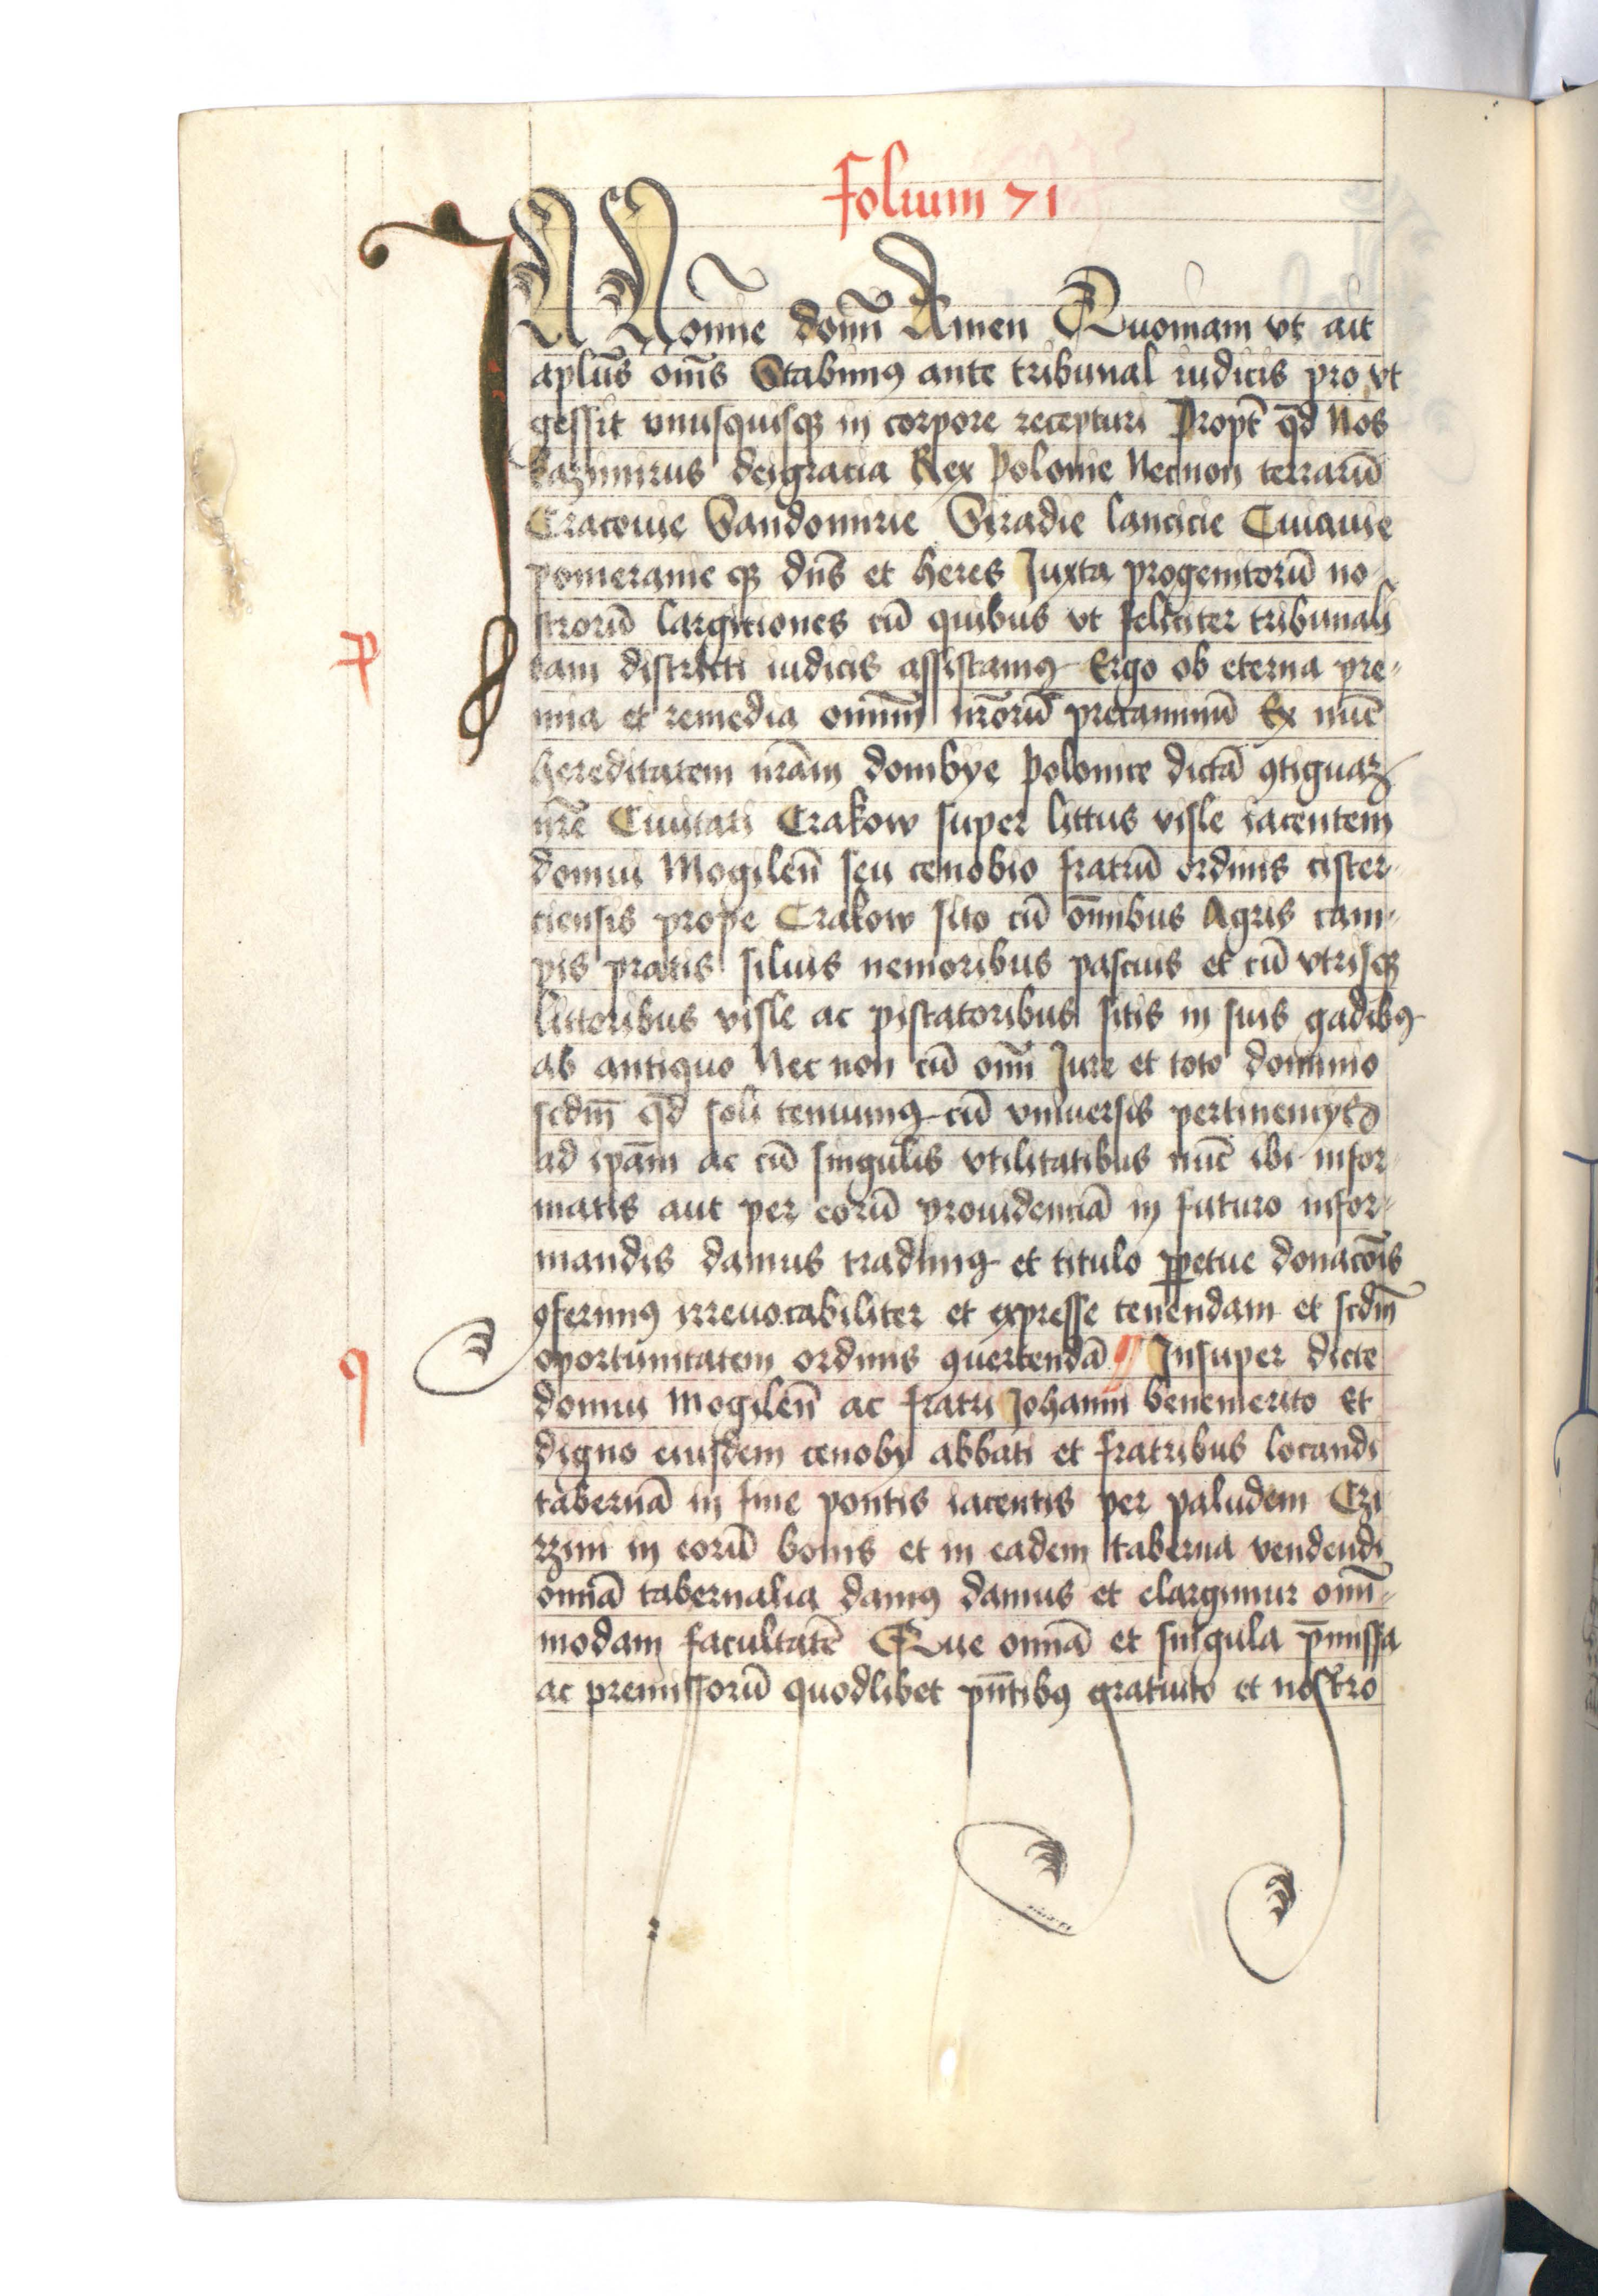 folium 71
IN Nomīe domī Amen Quoniam vt ait
aplūs om̄s Stabimꝯ ante tribunal iudicis pro vt
gessit vnusquisqꝫ in corpore recepturi Propt̄ qd̄ Nos
kazimirus deigracia Rex Polonie Necnon terrarū
Cracouie Sandomirie Siradie lancicie Cuiauie
pomeranie qꝫ dn̄s et heres Juxta progenitorū no
strorū largitiones cū quibus vt feliciter tribunali
tam districti iudicis assistamꝯ Ergo ob eterna pre-
mia et remedia omniū nr̄orū precaminū Ex nūc
hereditatem nr̄am dombye Polonice dictā ꝯtiguaꝫ
nr̄e Ciuitati Crakow super littus visle iacentem
domui Mogileñ seu cenobio fratrū ordinis cister-
ciensis prope Crakow sito cū om̄ibus Agris cam-
pis pratis siluis nemoribus pascuis et cū vtrisqꝫ
littoribus visle ac piscatoribus sitis in suis gadibꝯ
ab antiquo Nec non cū omī Jure et toto dominio
scdm̄ qd̄ soli tenuimꝯ cū vniuersis pertinencijs
ad ip̄am ac cū singulis vtilitatibus nūc ibi infor-
matis aut per eorū prouidenciā in futuro infor-
mandis damus tradimꝯ et titulo ꝑpetue donacōis
ꝯferimꝯ irreuocabiliter et expresse tenendam et scdm̄
oportunitatem ordinis ꝯuertendā ¶ Insuper dicte
domui Mogileñ ac fratri Johanni benemerito Et
digno eiusdem cenobij abbati et fratribus locandi
tabernā in fine pontis iacentis per paludem Czi
rzini in eorū bonis et in eadem taberna vendendi
omiā tabernalia damꝯ damus et elargimur omī-
modam facultatē Que omiā et singula p̄missa
ac premissorū quodlibet pn̄tibꝯ gratuito et nostro
p
q